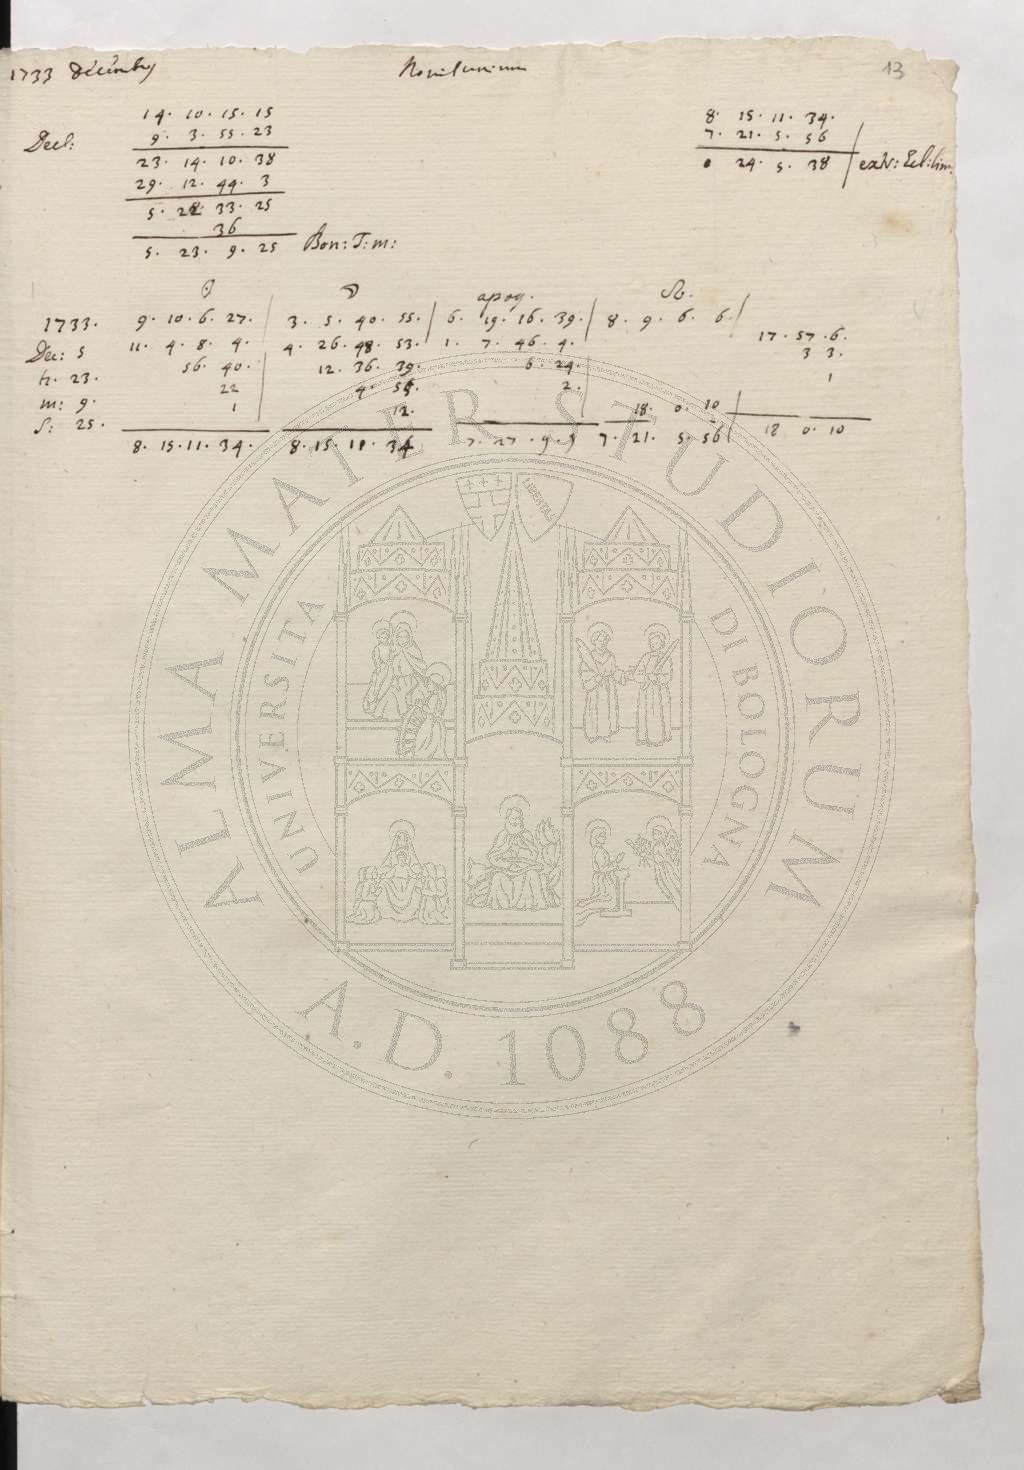 1733 Decemby Novilunium 13
14. 10. 15. 15
Decl: 9. 3. 55. 23
23. 14. 10. 38
29. 12. 44. 3
5. 22 33. 25
36
5. 23. 9. 25 Bon: T: m:
8. 15. 11. 34.
7. 21. 5. 56
0 24. 5. 38 extr: Ecl: lim:
☉ ☽ apog. ☊.
1733. 9. 10. 6. 27. 3. 5. 40. 55. 6. 19. 16. 39. 8. 9. 6. 6.
Dec: 5 11. 4. 8. 4. 4. 26. 48. 53. 1. 7. 46. 4. 17. 57. 6.
h. 23. 56. 40. 12. 36. 39. 6. 24. 3 3.
m: 9. 22 4. 55. 2. 1
S: 25. 1 12. 18. 0. 10
8. 15. 11. 34. 8. 15. 11. 34 7. 27. 9. 9 7. 21. 5. 56 18 0. 10
ALMA MATER STUDIORUM
UNIVERSITA DI BOLOGNA
LIBERTAS
A.D. 1088